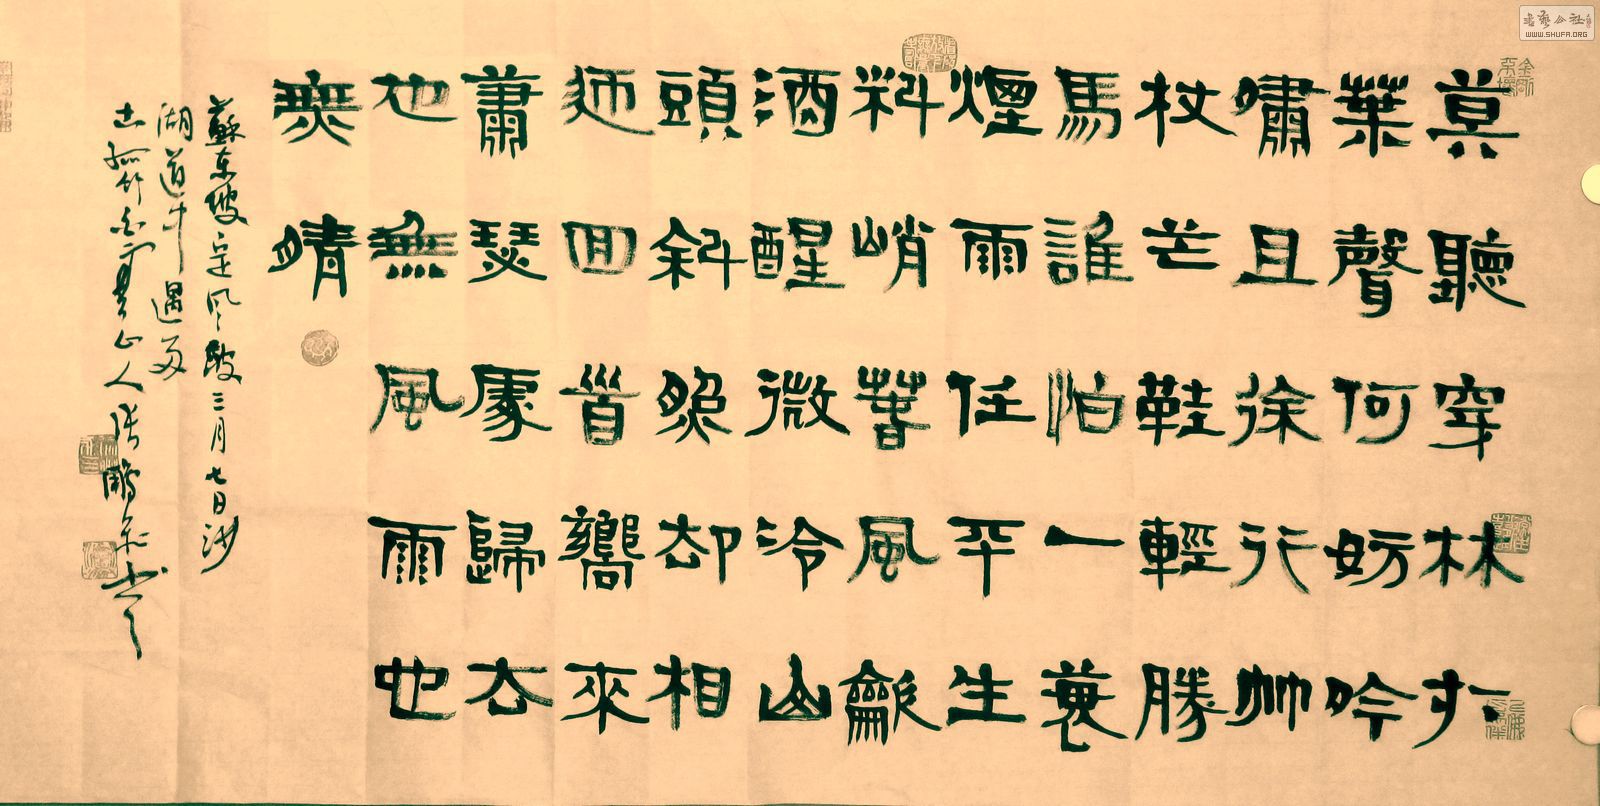 莫聽穿林打
葉聲何妨吟
嘯且徐行竹
杖芒鞋輕勝
馬誰怕一蓑
煙雨任平生
料峭春風龡
酒醒微冷山
頭斜照却相
迎回首嚮來
蕭瑟處歸去
也無風雨也
無晴
蘇東坡定風波三月七日沙
湖道中遇雨
古孤竹山人張鵬飛書
WWW.SHUFA.ORG